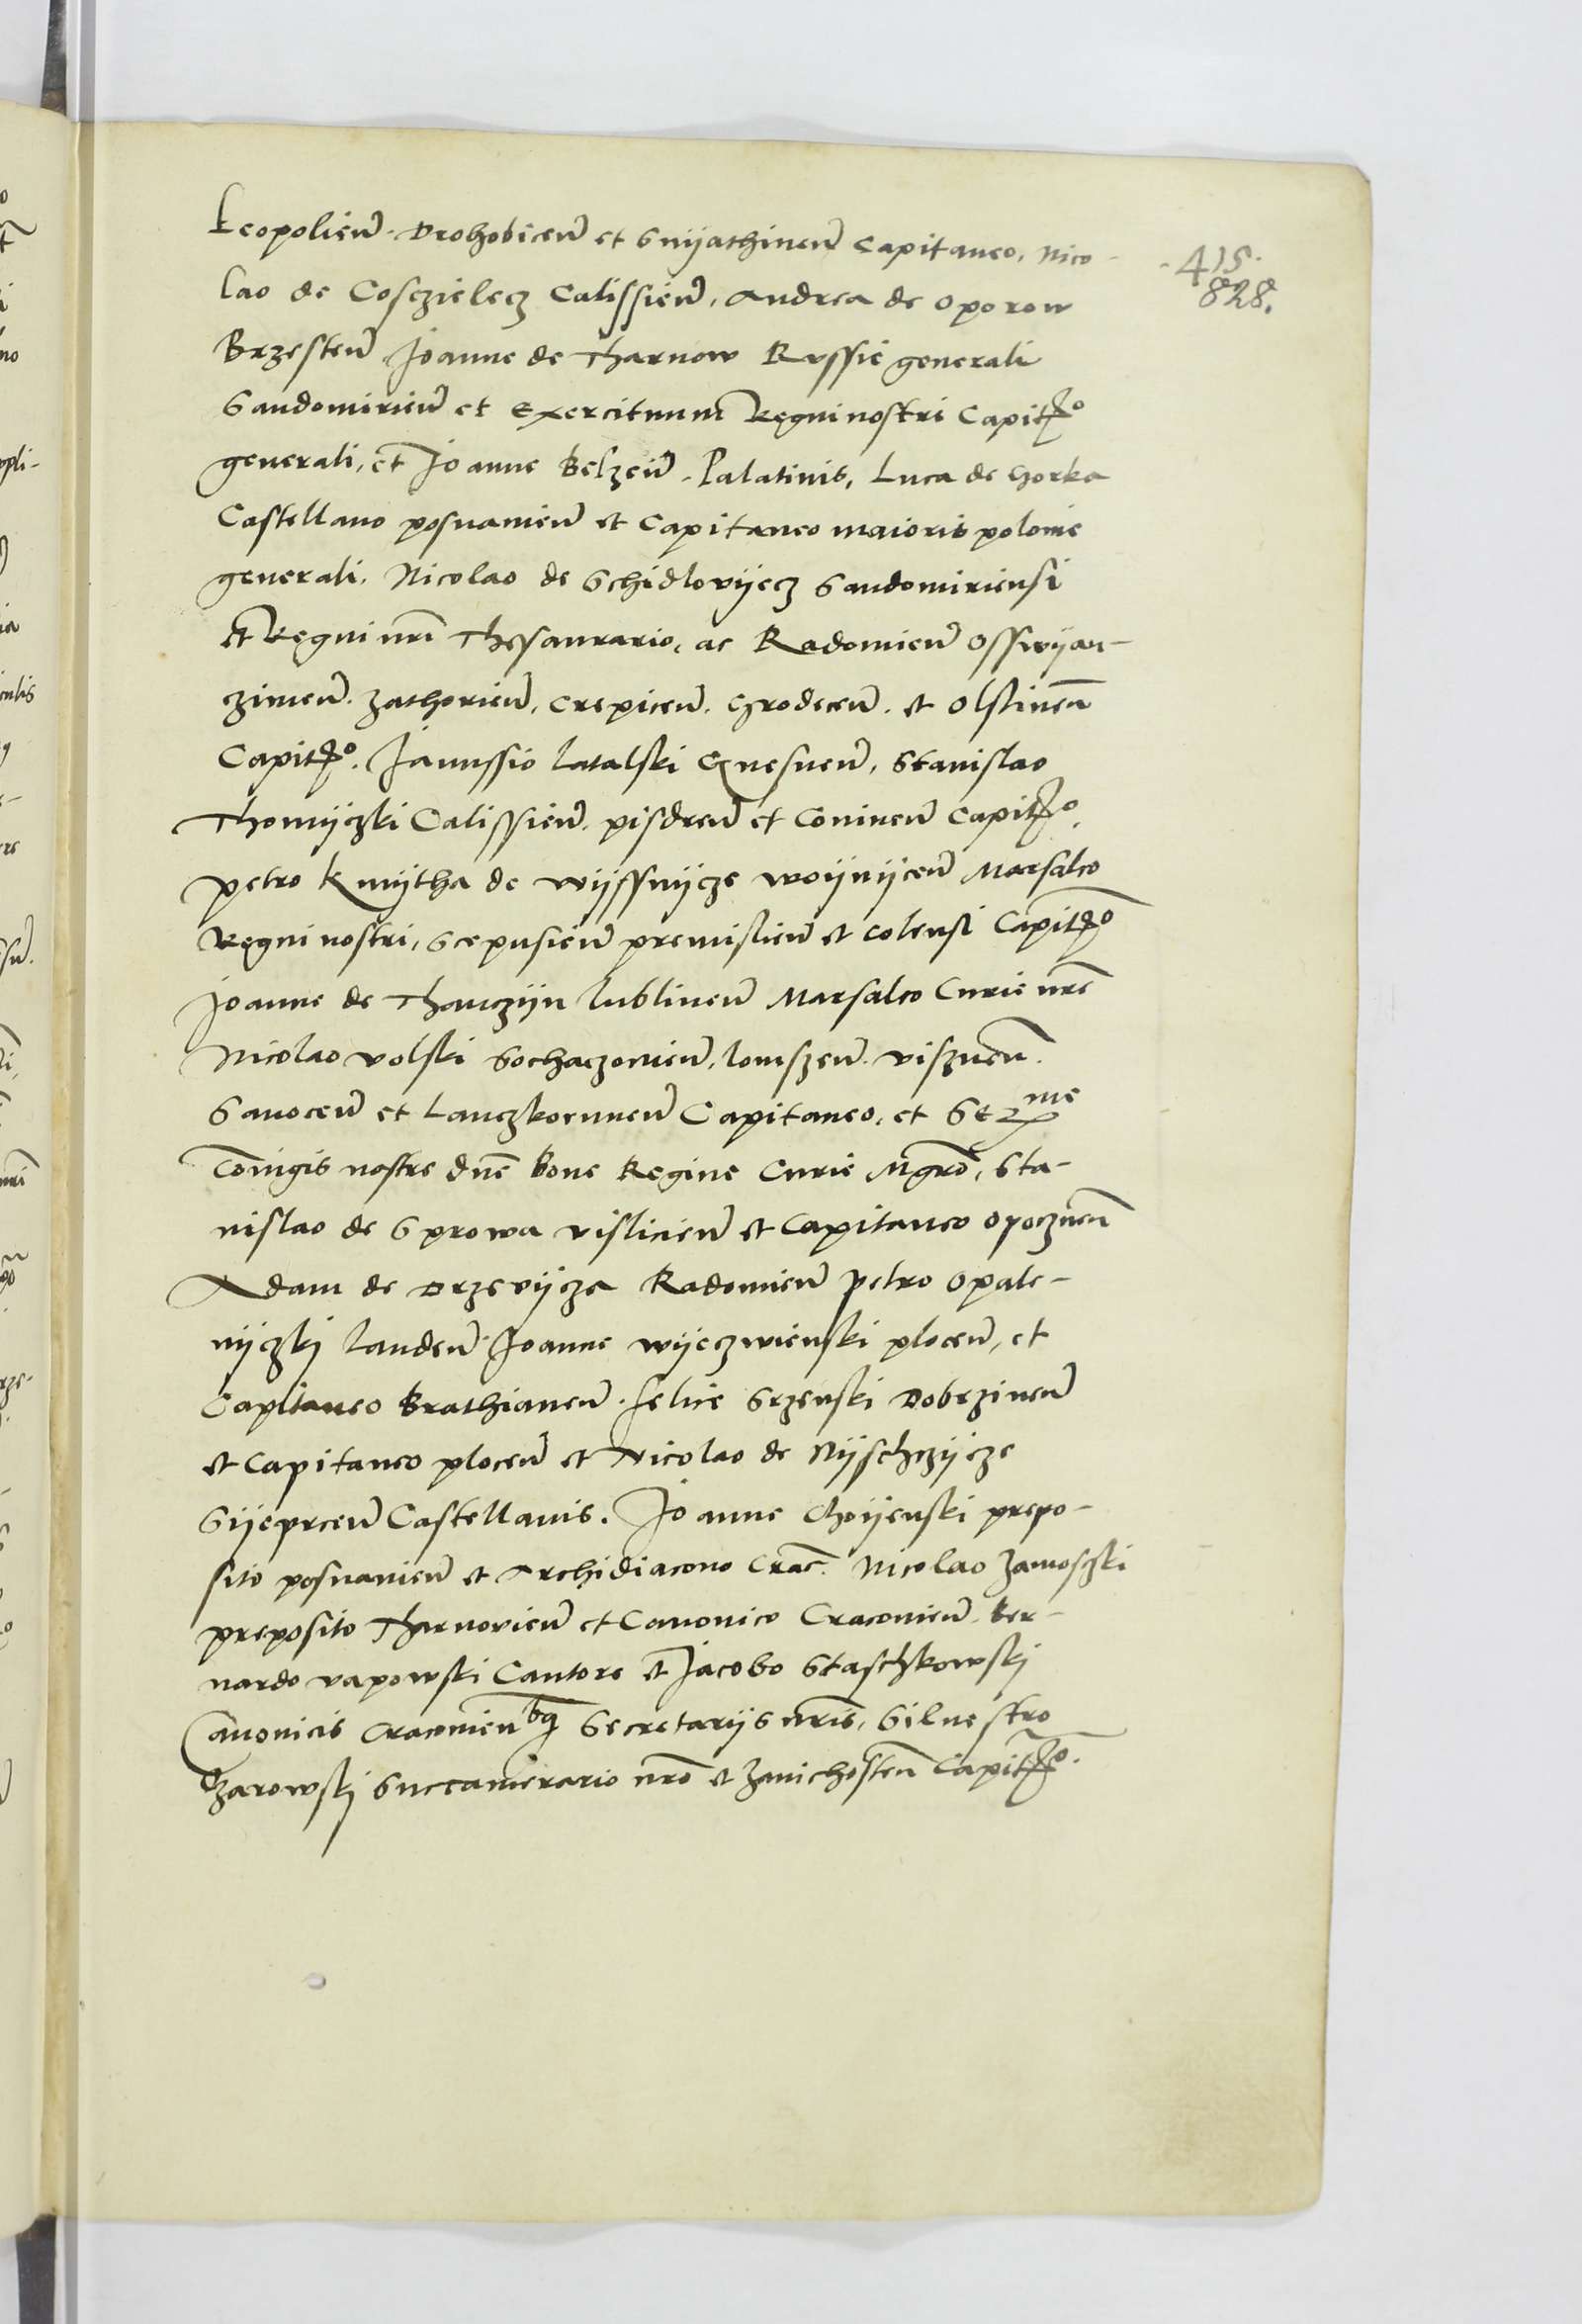 Leopolieñ. Drohobiceñ et Snÿathineñ Capitaneo, Nico-
415.
828.
lao de Coscziele cz Calissieñ, Andrea de Oporow
Brzesteñ Joanne de Tharnow Russie generali
Sandomirieñ et Exercituum Regni nostri Capitño
generali, et Joanne Belzeñ. Palatinis, Luca de Gorka
Castellano posnanieñ et Capitaneo maioris polonie
generali, Nicolao de Schidlovÿecz Sandomiriensi
et Regni nri Thesaurario, ac Radomieñ Osswÿan-
czimeñ. Zathorieñ, Crepiceñ. Grodeceñ. et Olstineñ
Capitño. Janussio Latalski Gnesneñ, Stanislao
Thomÿczki Calissieñ. pisdreñ et Conineñ Capitño.
petro Kmÿtha de Wÿssnÿcze Woÿnÿceñ Marsalco
Regni nostri, Scepusieñ premislieñ et Colensi Capitño
Joanne de Thanczÿn Lublineñ Marsalco Curie nre
Nicolao Volski Sochaczovieñ, lomszeñ. visneñ.
Sanoceñ et Lanczkoruneñ Capitaneo, et Ser me
Coniugis nostre dne Bone Regine Curie Mgro, Sta-
nislao de Sprowa vislicieñ et Capitaneo Opoczneñ
Adam de Drzevÿcza Radomieñ petro Opale-
nÿczkj Landeñ Joanne wÿeczwienski ploceñ, et
Capitaneo Brathianeñ. felice Srzenski Dobrzineñ
et Capitaneo ploceñ et Nicolao de Nÿschczÿcze
Sÿeprceñ Castellanis. Joanne Choÿenski prepo-
sito posnanieñ et Archidiacono Crac. Nicolao Zamosczski
preposito Tharnovieñ et Canonico Cracovieñ. Ber-
nardo vapowski Cantore et Jacobo Staschkowskj
Canonicis Cracovien bq Secretarÿs nris, Siluestro
Ozarowskj Succamerario nro et Zavichosteñ Capitño.